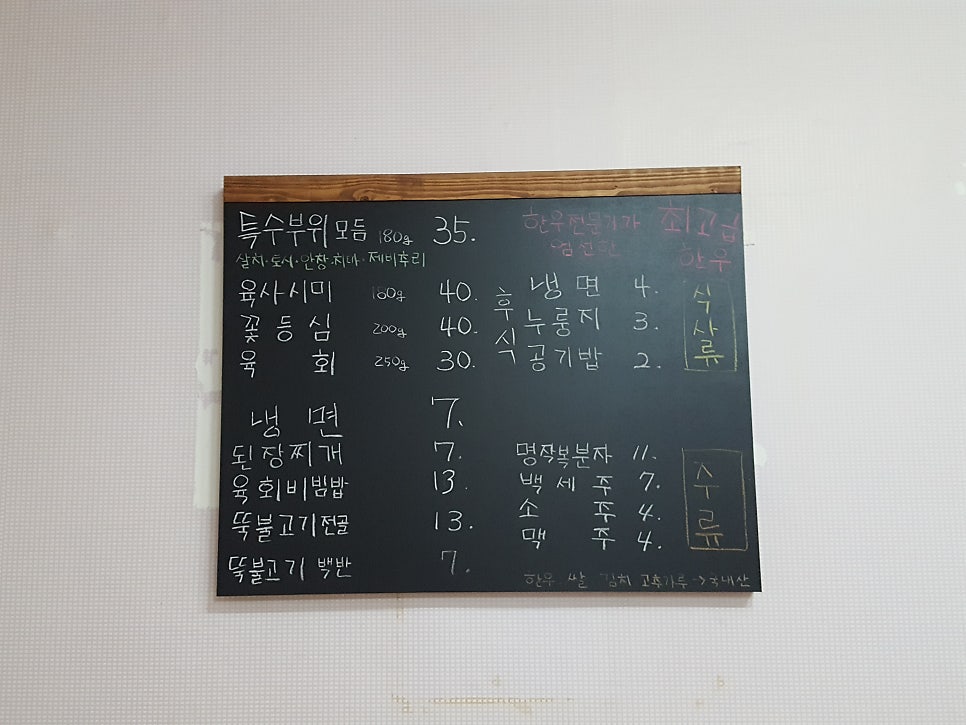 특수부위모듬 180g 35.
살치·토시·안창·치마·제비추리
육사시미 180g 40.
꽃등심 200g 40.
육회 250g 30.
냉면 7.
된장찌개 7.
육회비빔밥 13.
뚝불고기전골 13.
뚝불고기 백반 7.
한우전문가가 엄선한
최고급 한우
후식
냉면 4.
누룽지 3.
공기밥 2.
식사류
명작복분자 11.
백세주 7.
소주 4.
맥주 4.
주류
한우 쌀 김치 고추가루->국내산